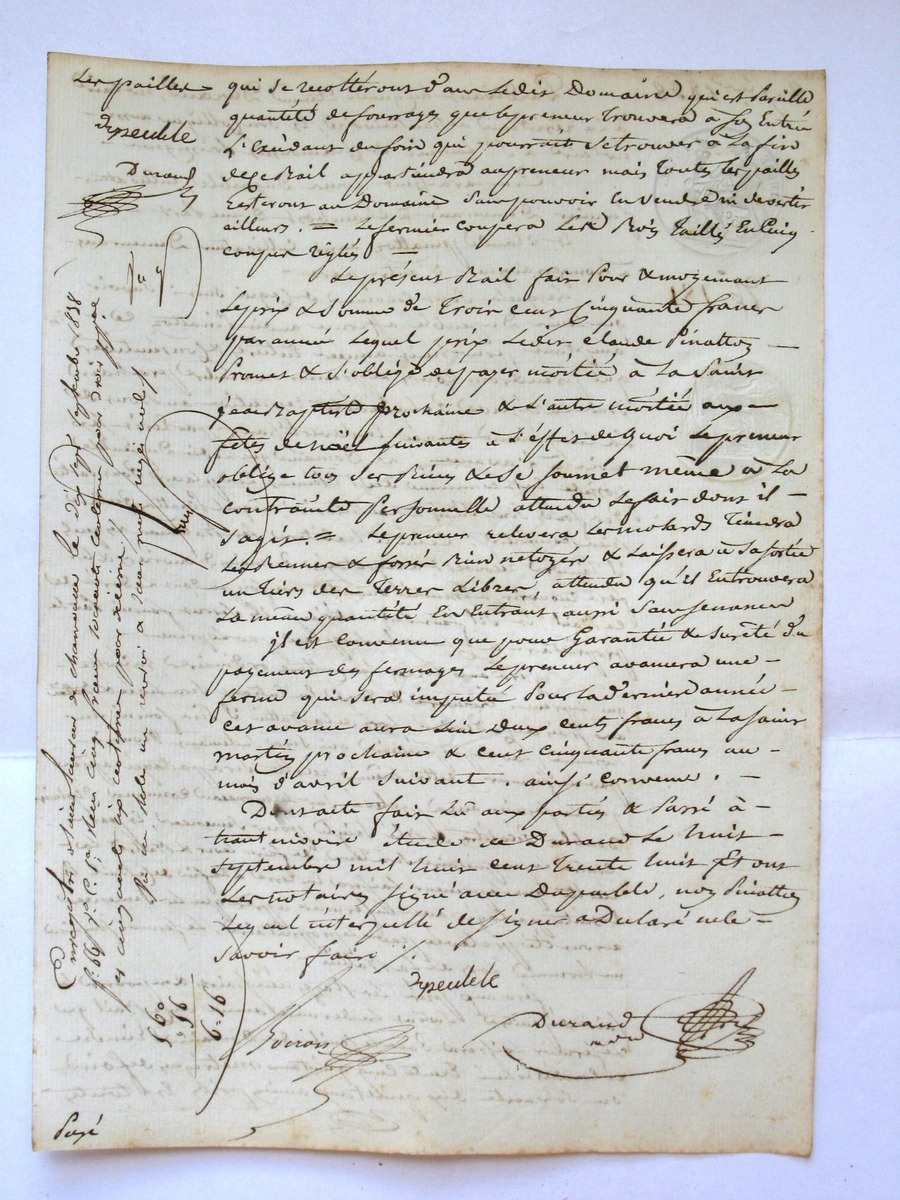 Les pailles qui se recolteront dans ledit Domaine qui est pareille
quantité de fourrages que le preneur trouvera à son Entrée
L'Exédant du foin qui pourrait se trouver à la fin
de ce Bail appartiendra au preneur mais toutes les pailles
Resteront au Domaine sans pouvoir en vendre ni
ailleurs. = Le fermier coupera les Bois Taillis En
coupes réglés —
Le présent Bail fait Pour & moyennant
Le prix & Somme de Trois cent cinquante francs
par année Lequel prix Ledit Claude Pinatton —
Promet & s'oblige de payer moitiée à La Saint
jean Baptiste prochaine & L'autre moitiée aux —
fêtes de noël suivantes à L'effet de quoi Le preneur
oblige tous Ses Biens & se soumet même à La
contrainte Personnelle attendu Le fait dont il —
s'agit. = Le preneur relevera Les Tiendra
Les & fossés Bien netoyés & Laissera à sa sortie
un Tiers des Terres Libres, attendu qu'il En trouvera
La même quantité En Entrant, aussi sans semences
il est Convenu que pour Garantie & sureté du
payement des fermages Le preneur avancera une —
ferme qui sera imputée Pour La dernier année —
cet avance aura Lieu Deux cents francs à La Saint
martin prochaine & cent cinquante francs au —
mois d'avril suivant. ainsi convenu. —
Dont acte fait Lû aux parties & Passé à —
étude de Durand Le huit —
Septembre mil huit cent Trente huit Et ont
Les notaires signé avec, non Pinatton
Lequel interpellé de signer a Declaré ne le —
savoir faire /.
Durand
Durand
Enregistré à Saint Laurent de chamousset le dix sept septembre 1838
f° 69 v° c. 1re reçu cinq francs soixante centimes pour trois
et cinquante six centimes pour dixieme,
5 60
56
6=16
Payé